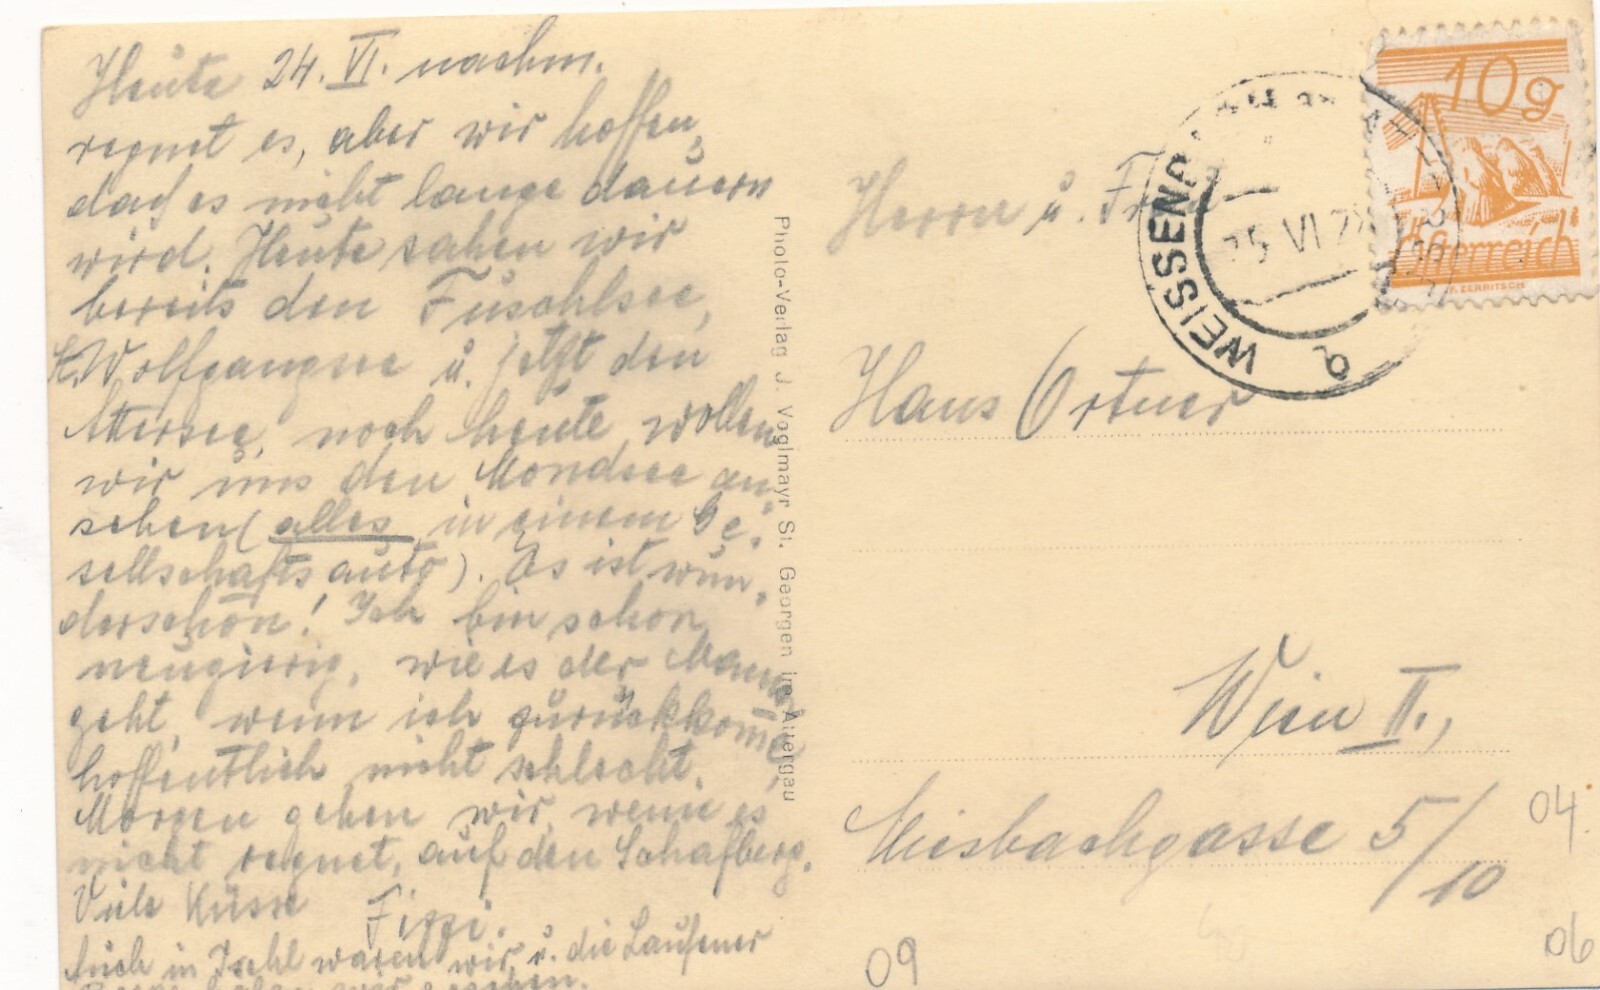 Heute 24. VI. nachm.
regnet es, aber wir hoffen,
daß es nicht lange dauern
wird. Heute sahen wir
bereits den Fuschlsee,
St. Wolfgangsee u. jetzt den
Attersee, noch heute wollen
wir uns den Mondsee an-
sehen (alles in einem Ge-
sellschaftsauto). Es ist wun-
derschön! Ich bin schon
neugierig, wie es der Mama
geht, wenn ich zurückkome,
hoffentlich nicht schlecht.
Morgen gehen wir, wenn es
nicht regnet, auf den Schafberg.
Viele Küsse Fizzi.
Auch in Ischl waren wir u. die Laufener
haben wir gesehen.
Photo-Verlag J. Voglmayr St. Georgen im Attergau
10g
Österreich
F. ZERRITSCH
25 VI 28
b
Herrn u. Frau
Hans Ortner
Wien II.,
Miesbachgasse 5/10
04.
06
09